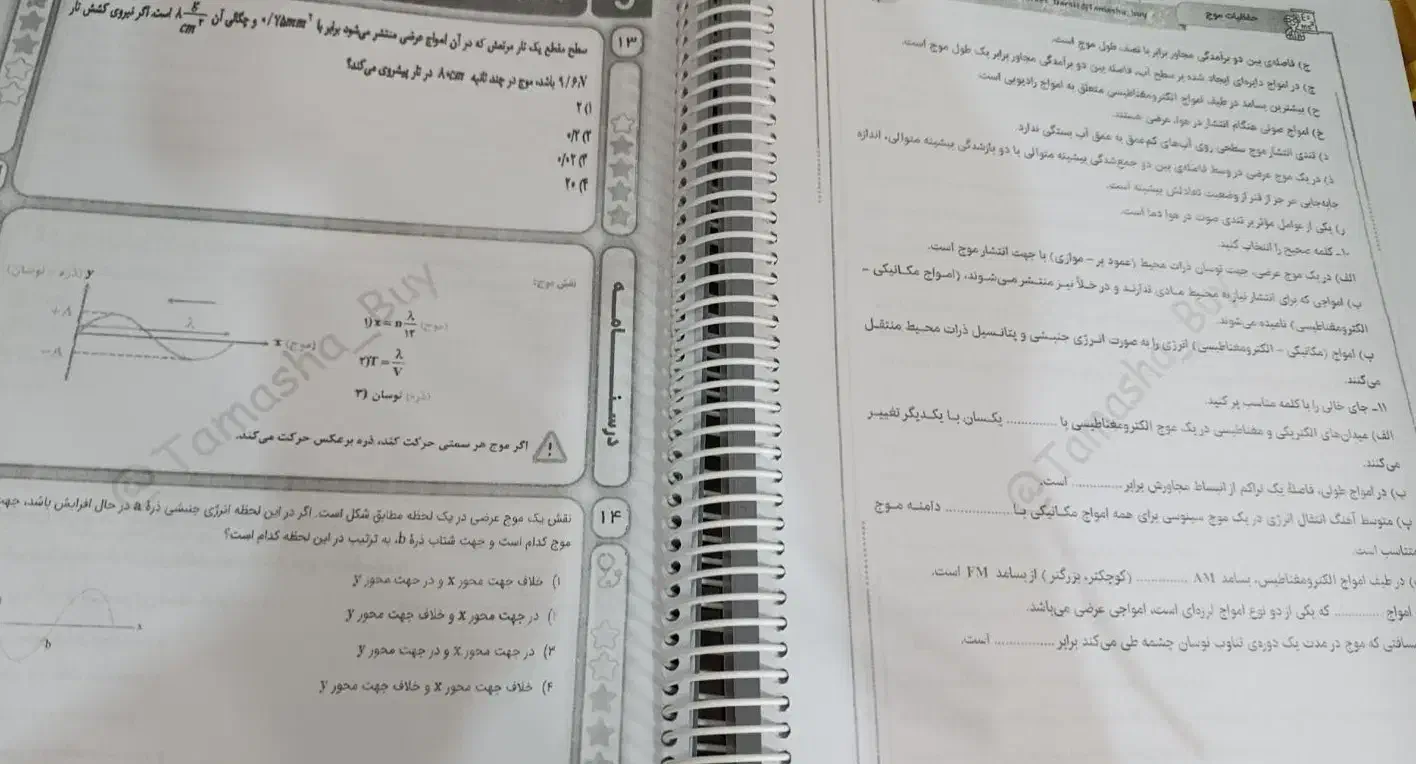 حفظیات موج
ج) فاصله‌ی بین دو برآمدگی مجاور برابر با نصف طول موج است.
چ) در امواج دایره‌ای ایجاد شده بر سطح آب، فاصله‌ی بین دو برآمدگی مجاور برابر یک طول موج است.
ح) بیشترین بسامد در طیف امواج الکترومغناطیسی متعلق به امواج رادیویی است.
خ) امواج صوتی هنگام انتشار در هوا، عرضی هستند.
د) تندی انتشار موج سطحی روی آب‌های کم‌عمق به عمق آب بستگی ندارد.
ذ) در یک موج عرضی در وسط فاصله‌ی بین دو جمع‌شدگی بیشینه متوالی یا دو بازشدگی بیشینه متوالی، اندازه
جابه‌جایی هر جزء از فنر از وضعیت تعادلش بیشینه است.
ر) یکی از عوامل مؤثر بر تندی صوت در هوا دما است.
۱۰- کلمه صحیح را انتخاب کنید.
الف) در یک موج عرضی، جهت نوسان ذرات محیط (عمود بر - موازی) با جهت انتشار موج است.
ب) امواجی که برای انتشار نیاز به محیط مادی ندارند و در خلأ نیز منتشر می‌شوند، (امواج مکانیکی -
الکترومغناطیسی) نامیده می‌شوند.
پ) امواج (مکانیکی - الکترومغناطیسی) انرژی را به صورت انرژی جنبشی و پتانسیل ذرات محیط منتقل
می‌کنند.
۱۱- جای خالی را با کلمه مناسب پر کنید.
الف) میدان‌های الکتریکی و مغناطیسی در یک موج الکترومغناطیسی با ............ یکسان با یکدیگر تغییر
می‌کنند.
ب) در امواج طولی، فاصلهٔ یک تراکم از انبساط مجاورش برابر ............ است.
پ) متوسط آهنگ انتقال انرژی در یک موج سینوسی برای همه امواج مکانیکی با ............ دامنه موج
متناسب است.
در طیف امواج الکترومغناطیسی، بسامد AM ............ (کوچکتر، بزرگتر) از بسامد FM است.
امواج ............ که یکی از دو نوع امواج لرزه‌ای است، امواجی عرضی می‌باشد.
مسافتی که موج در مدت یک دوره‌ی تناوب نوسان چشمه طی می‌کند برابر ............ است.
۱۳
سطح مقطع یک تار مرتعش که در آن امواج عرضی منتشر می‌شود، برابر با ۰/۷۵mm² و چگالی آن ۸ g/cm³ است. اگر نیروی کشش تار
۹/۶N باشد، موج در چند ثانیه ۸۰cm در تار پیشروی می‌کند؟
۱) ۲
۲) ۰/۲
۳) ۰/۰۲
۴) ۲۰
درسنامه
نقش موج:
۱) x = n λ/۱۲ (موج)
۲) T = λ/V
۳) نوسان (ذره)
(ذره - نوسان) y
+A
-A
λ
x (موج)
اگر موج به هر سمتی حرکت کند، ذره برعکس حرکت می‌کند.
۱۴
نقش یک موج عرضی در یک لحظه مطابق شکل است. اگر در این لحظه انرژی جنبشی ذرهٔ a در حال افزایش باشد، جهت
موج کدام است و جهت شتاب ذرهٔ b، به ترتیب در این لحظه کدام است؟
۱) خلاف جهت محور x و در جهت محور y
۲) در جهت محور x و خلاف جهت محور y
۳) در جهت محور x و در جهت محور y
۴) خلاف جهت محور x و خلاف جهت محور y
x
b
@Tamasha_Buy
@Tamasha_Buy